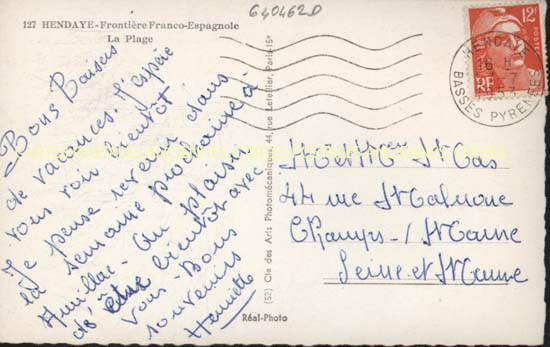 640462D
127 HENDAYE - Frontière Franco-Espagnole
La Plage
Bons Baisers
de vacances. J'espère
vous voir bientôt
Je pense revenir dans
la semaine prochaine à
Au plaisir
d'être bientôt avec
vous - Bons
souvenirs
Henriette
(52) Cie des Arts Photomécaniques, 44, rue Letellier, Paris-15e
Réal-Photo
12F
POSTES
RF
HENDAYE
16 H
7
BASSES PYRENEES
44 rue
Champs s/ Marne
Seine et Marne